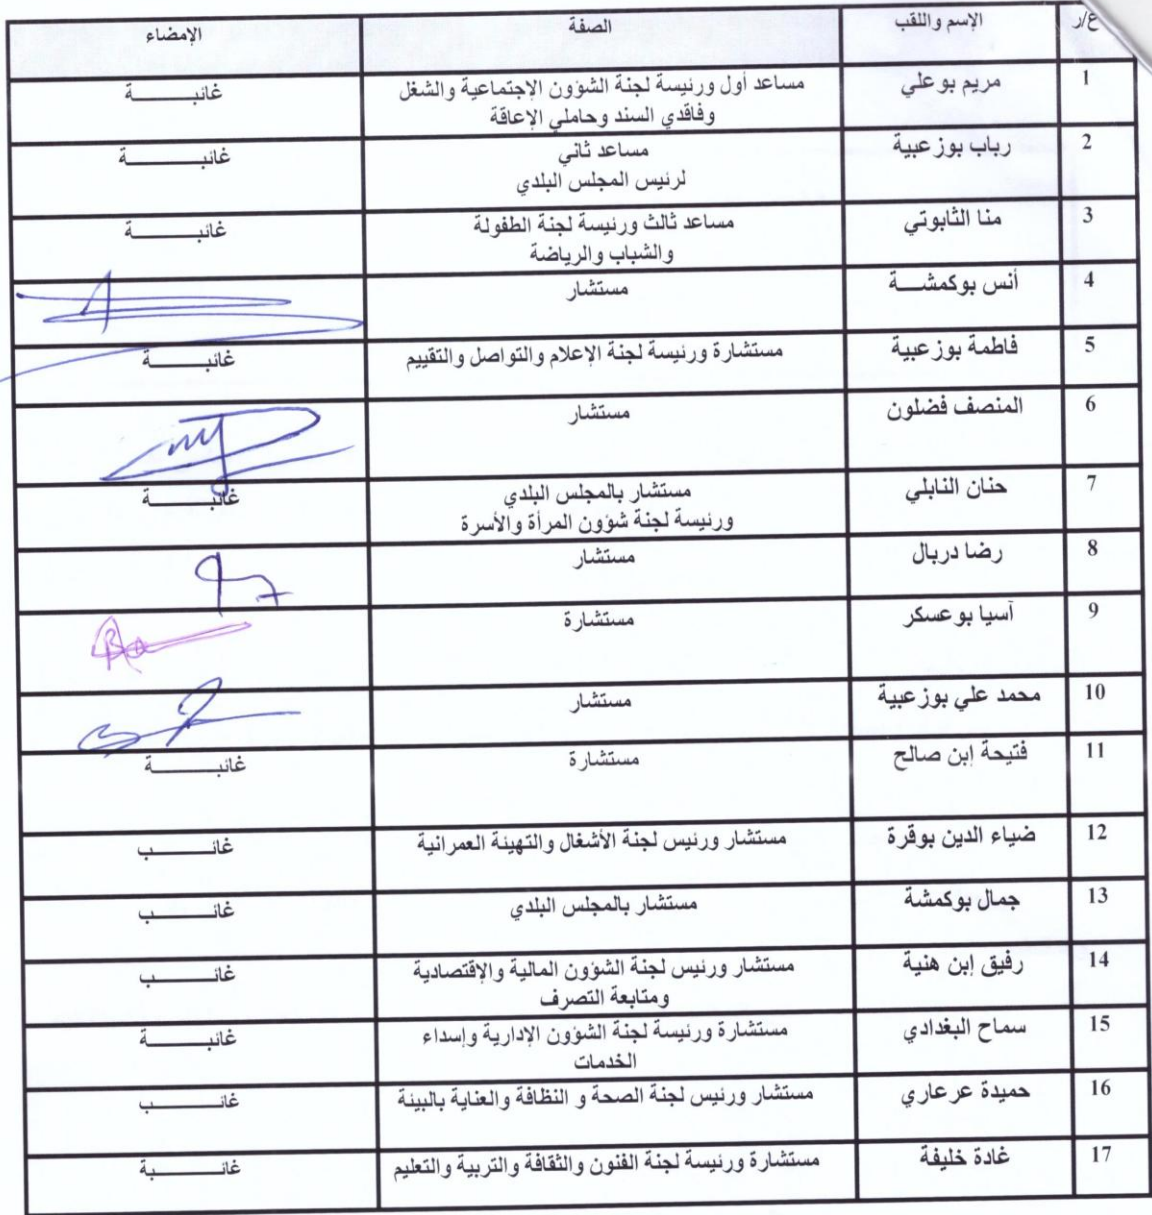 ع/ر الإسم واللقب الصفة الإمضاء
1 مريم بوعلي مساعد أول ورئيسة لجنة الشؤون الإجتماعية والشغل غائبـــــــة
وفاقدي السند وحاملي الإعاقة
2 رباب بوزعبية مساعد ثاني غائبـــــــة
لرئيس المجلس البلدي
3 منا الثابوتي مساعد ثالث ورئيسة لجنة الطفولة غائبـــــــة
والشباب والرياضة
4 أنس بوكمشـــة مستشار
5 فاطمة بوزعبية مستشارة ورئيسة لجنة الإعلام والتواصل والتقييم غائبـــــــة
6 المنصف فضلون مستشار
7 حنان النابلي مستشار بالمجلس البلدي غائبـــــــة
ورئيسة لجنة شؤون المرأة والأسرة
8 رضا دربال مستشار
9 آسيا بوعسكر مستشارة
10 محمد علي بوزعبية مستشار
11 فتيحة إبن صالح مستشارة غائبـــــــة
12 ضياء الدين بوقرة مستشار ورئيس لجنة الأشغال والتهيئة العمرانية غائـــــــب
13 جمال بوكمشة مستشار بالمجلس البلدي غائـــــــب
14 رفيق إبن هنية مستشار ورئيس لجنة الشؤون المالية والإقتصادية غائـــــــب
ومتابعة التصرف
15 سماح البغدادي مستشارة ورئيسة لجنة الشؤون الإدارية وإسداء غائبـــــــة
الخدمات
16 حميدة عرعاري مستشار ورئيس لجنة الصحة و النظافة والعناية بالبيئة غائـــــــب
17 غادة خليفة مستشارة ورئيسة لجنة الفنون والثقافة والتربية والتعليم غائـــــــبة